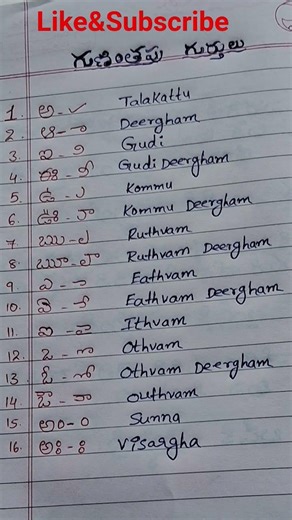 Like&Subscribe
గుణింతపు గుర్తులు
1. అ - ✓ Talakattu
2. ఆ - ా Deergham
3. ఇ - ి Gudi
4. ఈ - ీ Gudi Deergham
5. ఉ - ు Kommu
6. ఊ - ూ Kommu Deergham
7. ఋ - ృ Ruthvam
8. ౠ - ౄ Ruthvam Deergham
9. ఎ - ె Eathvam
10. ఏ - ే Eathvam Deergham
11. ఐ - ై Ithvam
12. ఒ - ొ Othvam
13. ఓ - ో Othvam Deergham
14. ఔ - ౌ Outhvam
15. అం - ం Sunna
16. అః - ః Visargha